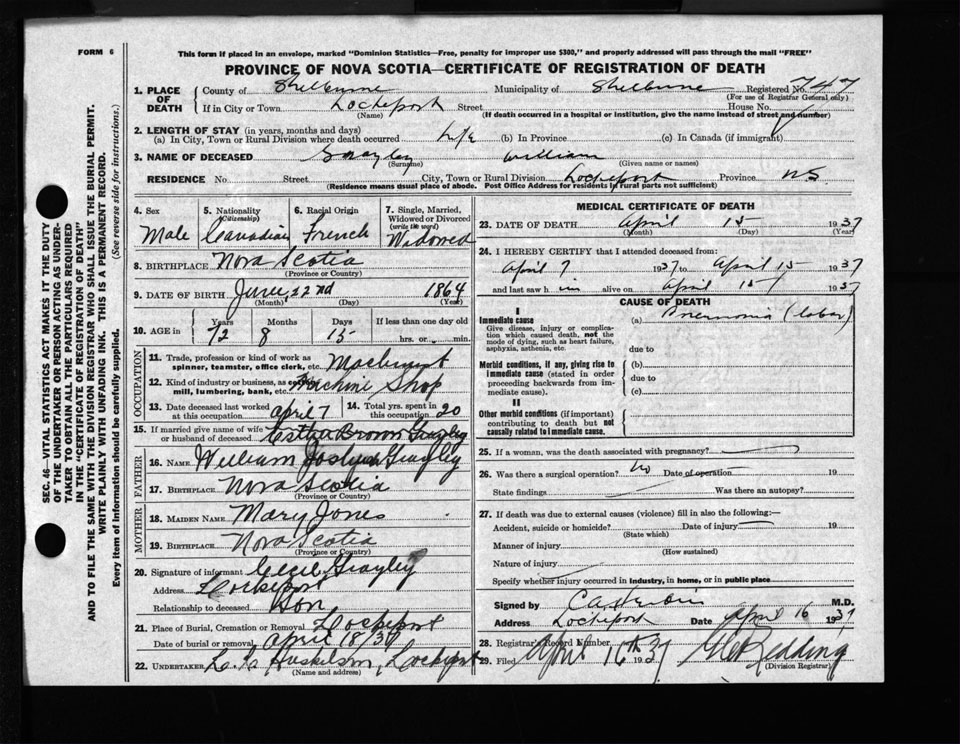 FORM 6
This form if placed in an envelope, marked "Dominion Statistics—Free, penalty for improper use $300," and properly addressed will pass through the mail "FREE"
PROVINCE OF NOVA SCOTIA—CERTIFICATE OF REGISTRATION OF DEATH
1. PLACE OF DEATH County of Shelburne Municipality of Shelburne Registered No. 747
(For use of Registrar General only)
If in City or Town Lockeport Street House No.
(Name) (If death occurred in a hospital or institution, give the name instead of street and number)
2. LENGTH OF STAY (in years, months and days)
(a) In City, Town or Rural Division where death occurred Life (b) In Province (c) In Canada (if immigrant)
3. NAME OF DECEASED William
(Surname) (Given name or names)
RESIDENCE No. Street City, Town or Rural Division Lockeport Province NS
(Residence means usual place of abode. Post Office Address for residents in rural parts not sufficient)
SEC. 46—VITAL STATISTICS ACT MAKES IT THE DUTY
OF THE UNDERTAKER OR PERSON ACTING AS UNDER-
TAKER TO OBTAIN ALL THE PARTICULARS REQUIRED
IN THE "CERTIFICATE OF REGISTRATION OF DEATH"
AND TO FILE THE SAME WITH THE DIVISION REGISTRAR WHO SHALL ISSUE THE BURIAL PERMIT.
WRITE PLAINLY WITH UNFADING INK. THIS IS A PERMANENT RECORD.
Every item of information should be carefully supplied. (See reverse side for instructions.)
4. Sex Male
5. Nationality (Citizenship) Canadian
6. Racial Origin French
7. Single, Married, Widowed or Divorced (write the word) Widowed
8. BIRTHPLACE Nova Scotia
(Province or Country)
9. DATE OF BIRTH June, 22nd 1864
(Month) (Day) (Year)
10. AGE in Years 72 Months 8 Days 15 If less than one day old
hrs. or min.
OCCUPATION
11. Trade, profession or kind of work as spinner, teamster, office clerk, etc. Machinist
12. Kind of industry or business, as cotton mill, lumbering, bank, etc. Machine Shop
13. Date deceased last worked at this occupation April 7
14. Total yrs. spent in this occupation 20
15. If married give name of wife or husband of deceased Brown
FATHER
16. NAME William
17. BIRTHPLACE Nova Scotia
(Province or Country)
MOTHER
18. MAIDEN NAME Mary Jones
19. BIRTHPLACE Nova Scotia
(Province or Country)
20. Signature of informant Cecil
Address Lockeport
Relationship to deceased Son
21. Place of Burial, Cremation or Removal Lockeport
Date of burial or removal April 18/37
22. UNDERTAKER Lockeport
(Name and address)
MEDICAL CERTIFICATE OF DEATH
23. DATE OF DEATH April 15 1937
(Month) (Day) (Year)
24. I HEREBY CERTIFY that I attended deceased from:
April 7 1937 to April 15 1937
and last saw him alive on April 15 1937
CAUSE OF DEATH
I
Immediate cause (a) Pneumonia (lobar)
Give disease, injury or complication which caused death, not the mode of dying, such as heart failure, asphyxia, asthenia, etc.
due to
Morbid conditions, if any, giving rise to immediate cause (stated in order proceeding backwards from immediate cause). (b)
due to
(c)
II
Other morbid conditions (if important) contributing to death but not causally related to immediate cause.
25. If a woman, was the death associated with pregnancy?
26. Was there a surgical operation? No Date of operation 19
State findings Was there an autopsy?
27. If death was due to external causes (violence) fill in also the following:—
Accident, suicide or homicide? Date of injury 19
(State which)
Manner of injury
(How sustained)
Nature of injury
Specify whether injury occurred in industry, in home, or in public place
Signed by M.D.
Address Lockeport Date April 16 1937
28. Registrar's Record Number
29. Filed April 16th 1937 Redding
(Division Registrar)